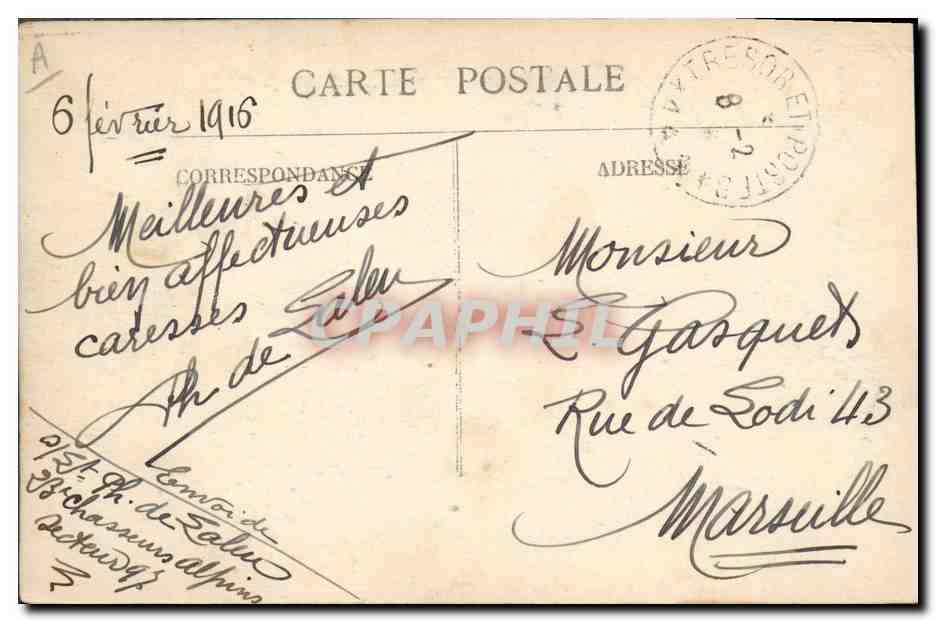 A
CARTE POSTALE
TRESOR ET POSTES
8-2
6 février 1916
CORRESPONDANCE
ADRESSE
Meilleures et
bien affectueuses
caresses
Ph de Salen
Monsieur
E. Gasquet
Rue de Lodi 43
Marseille
Envoi de
s/Lt Ph. de Salen
23e chasseurs alpins
secteur
CPAPHIL